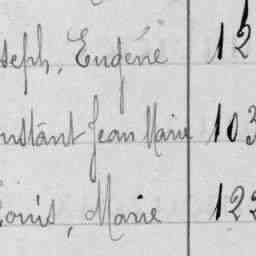 seph, Eugéne 12
nstant Jean Marie 103
Louis, Marie 122